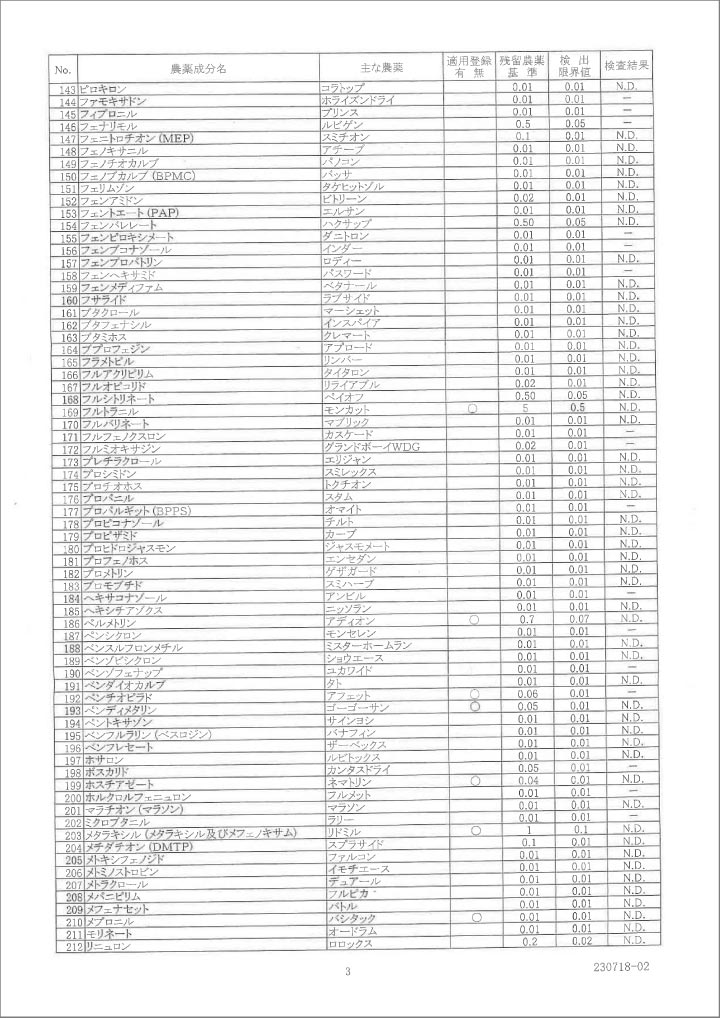 No. 農薬成分名 主な農薬 適用登録有無 残留農薬基準 検出限界値 検査結果
143 ピロキロン コラトップ 0.01 0.01 N.D.
144 ファモキサドン ホライズンドライ 0.01 0.01 －
145 フィプロニル プリンス 0.01 0.01 －
146 フェナリモル ルビゲン 0.5 0.05 －
147 フェニトロチオン(MEP) スミチオン 0.1 0.01 N.D.
148 フェノキサニル アチーブ 0.01 0.01 N.D.
149 フェノチオカルブ パノコン 0.01 0.01 N.D.
150 フェノブカルブ(BPMC) バッサ 0.01 0.01 N.D.
151 フェリムゾン タケヒットゾル 0.01 0.01 N.D.
152 フェンアミドン ビトリーン 0.02 0.01 N.D.
153 フェントエート(PAP) エルサン 0.01 0.01 N.D.
154 フェンバレレート ハクサップ 0.50 0.05 N.D.
155 フェンピロキシメート ダニトロン 0.01 0.01 －
156 フェンブコナゾール インダー 0.01 0.01 －
157 フェンプロパトリン ロディー 0.01 0.01 N.D.
158 フェンヘキサミド パスワード 0.01 0.01 －
159 フェンメディファム ベタナール 0.01 0.01 N.D.
160 フサライド ラブサイド 0.01 0.01 N.D.
161 ブタクロール マーシェット 0.01 0.01 N.D.
162 ブタフェナシル インスパイア 0.01 0.01 N.D.
163 ブタミホス クレマート 0.01 0.01 N.D.
164 ブプロフェジン アプロード 0.01 0.01 N.D.
165 フラメトピル リンバー 0.01 0.01 N.D.
166 フルアクリピリム タイタロン 0.01 0.01 N.D.
167 フルオピコリド リライアブル 0.02 0.01 N.D.
168 フルシトリネート ペイオフ 0.50 0.05 N.D.
169 フルトラニル モンカット ○ 5 0.5 N.D.
170 フルバリネート マブリック 0.01 0.01 N.D.
171 フルフェノクスロン カスケード 0.01 0.01 －
172 フルミオキサジン グランドボーイWDG 0.02 0.01 －
173 プレチラクロール エリジャン 0.01 0.01 N.D.
174 プロシミドン スミレックス 0.01 0.01 N.D.
175 プロチオホス トクチオン 0.01 0.01 N.D.
176 プロパニル スタム 0.01 0.01 N.D.
177 プロパルギット(BPPS) オマイト 0.01 0.01 －
178 プロピコナゾール チルト 0.01 0.01 N.D.
179 プロピザミド カーブ 0.01 0.01 N.D.
180 プロヒドロジャスモン ジャスモメート 0.01 0.01 N.D.
181 プロフェノホス エンセダン 0.01 0.01 N.D.
182 プロメトリン ゲザガード 0.01 0.01 N.D.
183 ブロモブチド スミハーブ 0.01 0.01 N.D.
184 ヘキサコナゾール アンビル 0.01 0.01 －
185 ヘキシチアゾクス ニッソラン 0.01 0.01 N.D.
186 ペルメトリン アディオン ○ 0.7 0.07 N.D.
187 ペンシクロン モンセレン 0.01 0.01 －
188 ベンスルフロンメチル ミスターホームラン 0.01 0.01 N.D.
189 ベンゾビシクロン ショウエース 0.01 0.01 N.D.
190 ベンゾフェナップ ユカワイド 0.01 0.01 －
191 ベンダイオカルブ タト 0.01 0.01 N.D.
192 ペンチオピラド アフェット ○ 0.06 0.01 －
193 ペンディメタリン ゴーゴーサン ○ 0.05 0.01 N.D.
194 ペントキサゾン サインヨシ 0.01 0.01 N.D.
195 ベンフルラリン(ベスロジン) バナフィン 0.01 0.01 N.D.
196 ベンフレセート ザーベックス 0.01 0.01 N.D.
197 ホサロン ルビトックス 0.01 0.01 N.D.
198 ボスカリド カンタスドライ 0.05 0.01 －
199 ホスチアゼート ネマトリン ○ 0.04 0.01 N.D.
200 ホルクロルフェニュロン フルメット 0.01 0.01 －
201 マラチオン(マラソン) マラソン 0.01 0.01 N.D.
202 ミクロブタニル ラリー 0.01 0.01 －
203 メタラキシル(メタラキシル及びメフェノキサム) リドミル ○ 1 0.1 N.D.
204 メチダチオン(DMTP) スプラサイド 0.1 0.01 N.D.
205 メトキシフェノジド ファルコン 0.01 0.01 N.D.
206 メトミノストロビン イモチエース 0.01 0.01 N.D.
207 メトラクロール デュアール 0.01 0.01 N.D.
208 メパニピリム フルピカ 0.01 0.01 N.D.
209 メフェナセット バトル 0.01 0.01 N.D.
210 メプロニル バシタック ○ 0.01 0.01 N.D.
211 モリネート オードラム 0.01 0.01 N.D.
212 リニュロン ロロックス 0.2 0.02 N.D.
3
230718-02